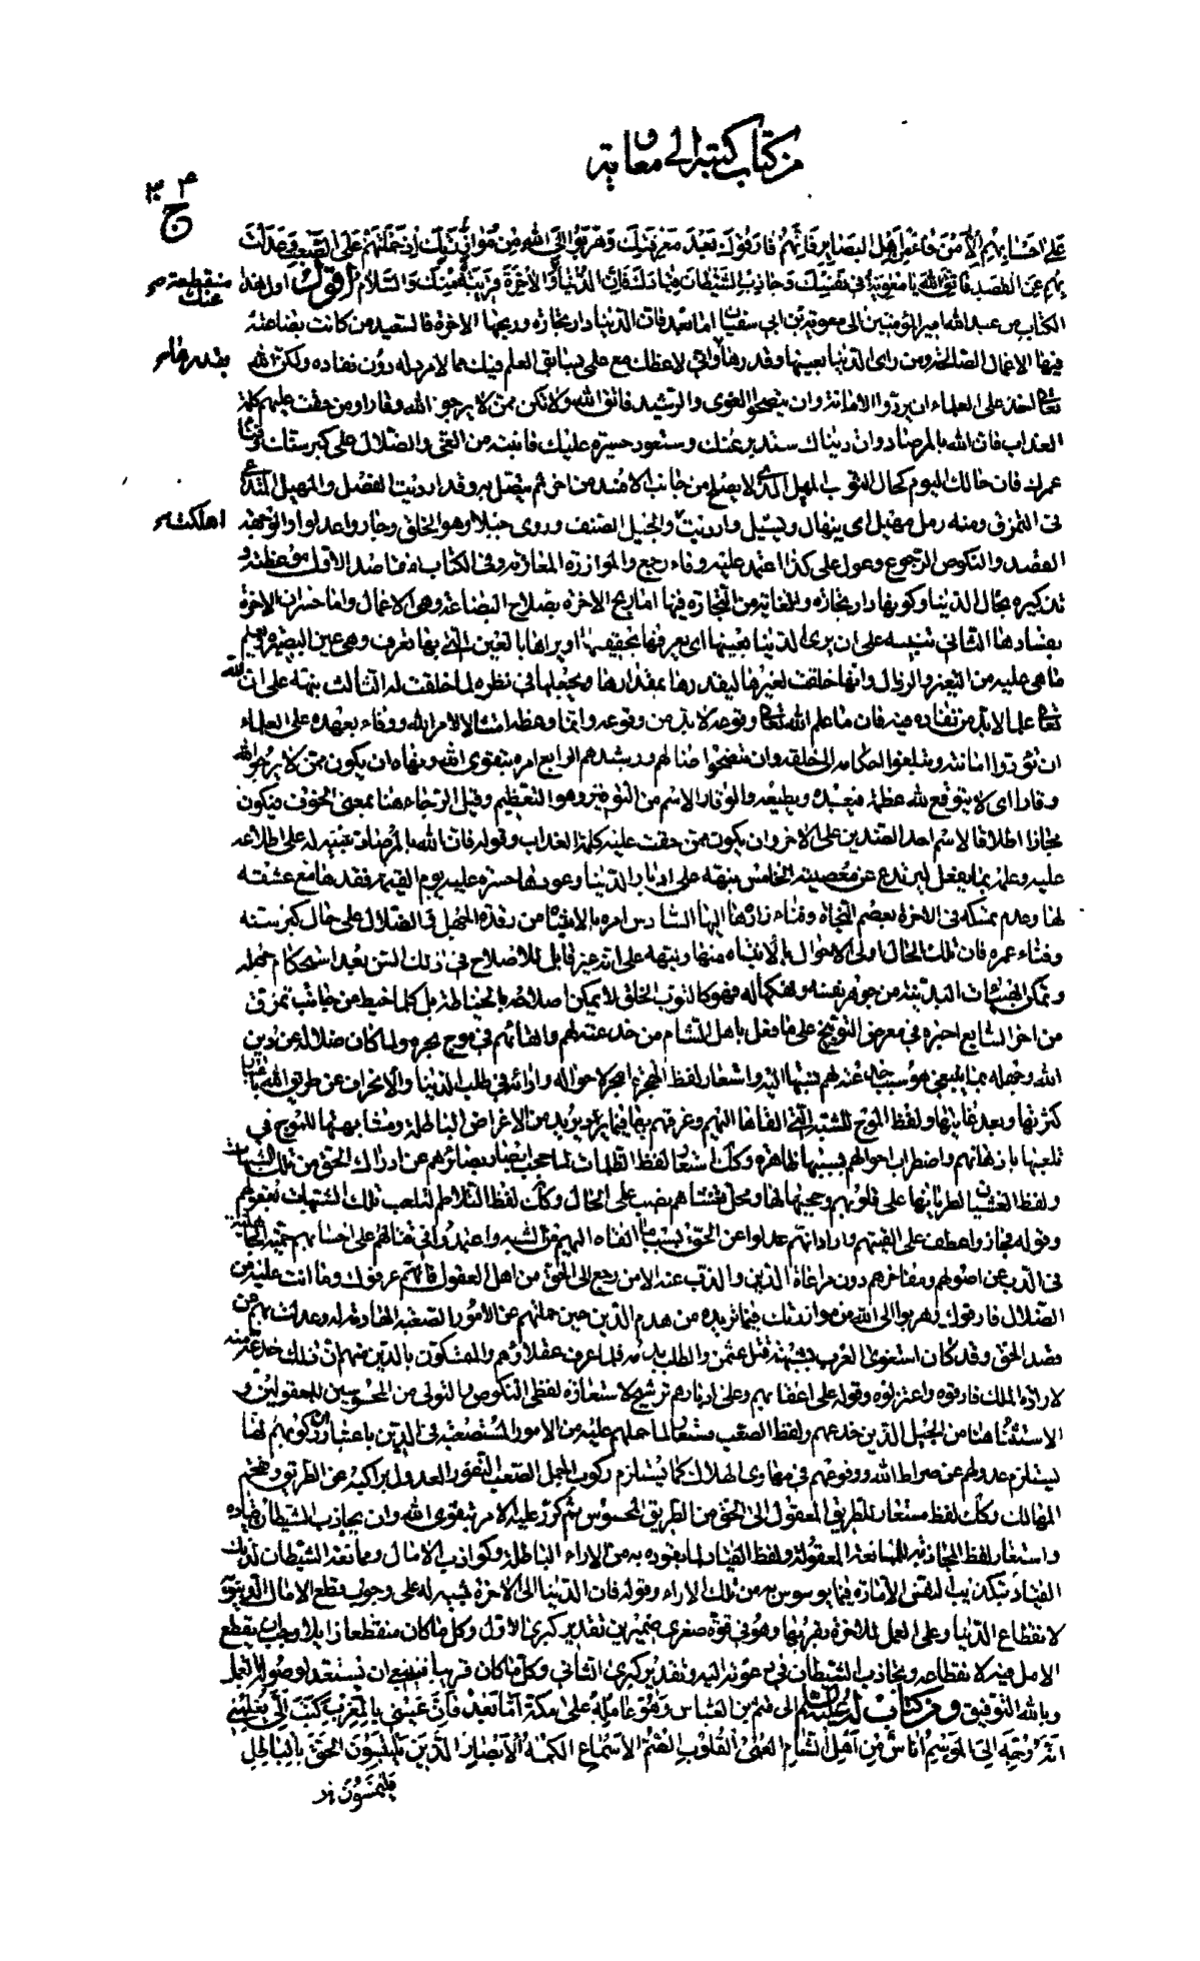 من كتاب كتبه الى معاوية
ج ٤
على احسابهم الا من فاء من اهل البصاير فانهم فارقوك بعد معرفتك وهربوا الى الله من موازرتك اذ حملتهم على الصعب وعدلت
بهم عن القصد فاتق الله يا معوية في نفسك وجاذب الشيطان قيادك فان الدنيا والاخرة قريبة منك والسلام اقول اول هذا
منقطعة عنك
الكتاب من عبد الله امير المؤمنين الى معوية بن ابي سفيان اما بعد فان الدنيا دار تجارة وربحها الاخرة فالسعيد من كانت بضاعته
فيها الاعمال الصالحة ومن راى الدنيا بعينها وقدرها واني لاعظك مع علمي بسابق العلم فيك مما لا مرد له دون نفاده ولكن الله
بقدرها
تعالى اخذ على العلماء ان يردوا الامانة وان ينصحوا الغوى والرشيد فاتق الله ولا تكن ممن لا يرجو الله وقارا ومن حقت عليهم كلمة
العذاب فان الله بالمرصاد وان دنياك ستدبر عنك وستعود حسرة عليك فانتبه من الغى والضلال على كبر سنك وفناء
عمرك فان حالك اليوم كحال الثوب المهيل الذي لا يصلح من جانب الا فسد من اخر ثم يتصل به وقد ارديت الفصل والمهيل المتداعى
في التمزق ومنه رمل مهيل اى ينهال ويسيل وارديت والجيل الصنف وروى جبلا وهو الخلق وجاروا عدلوا والوجهة
اهلكت
القصد والنكوص الرجوع وعول على كذا اعتمد عليه وفاء رجع والموازرة المعاونة وفي الكتاب مقاصد الاول موعظته و
تذكيره بحال الدنيا وكونها دار تجارة والغاية من التجارة فيها اما ربح الاخرة بصلاح البضاعة وهى الاعمال واما خسران الاخرة
بفسادها الثاني تنبيهه على ان يرى الدنيا بعينها اى يعرفها بحقيقتها او يراها بالعين التي بها تعرف وهى عين البصيرة ليعلم
ما هى عليه من التغير والزوال وانها خلقت لغيرها ليقدرها بمقدارها ويجعلها في نظره لما خلقت له الثالث نبهه على ان لله
تعالى علما لا بد من نفاده فيه فان ما علم الله تعالى وقوعه لا بد من وقوعه وانما وعظه امتثالا لامر الله ووفاء بعهده على العلماء
ان يؤدوا امانته ويبلغوا احكامه الى خلقه وان ينصحوا ضالهم ورشيدهم الرابع امره بتقوى الله ونهاه ان يكون ممن لا يرجو لله
وقارا اى لا يتوقع لله عظمة فيعبده ويطيعه والوقار الاسم من التوقير وهو التعظيم وقيل الرجاء هنا بمعنى الخوف فيكون
مجازا اطلاقا لاسم احد الضدين على الاخر وان يكون ممن حقت عليه كلمة العذاب وقوله فان الله بالمرصاد تنبيه له على اطلاعه
عليه وعلمه بما يفعل ليرتدع عن معصيته الخامس نبهه على ادبار الدنيا وعودها حسرة عليه يوم القيمة بفقدها مع عشقه
لها وعدم تمسكه في الاخرة بعصم النجاة وفناء زادها اليها السادس امره بالانتباه من رقدة الجهل والضلال على حال كبر سنه
وفناء عمره فان تلك الحال اولى الاحوال بالانتباه منها ونبهه على انه غير قابل للاصلاح في ذلك السن بعد استحكام جهله
وتمكن الهيئات البدنية من جوهر نفسه ونهكها له فهو كالثوب الخلق لا يمكن اصلاحه بالخياطة بل كلما خيط من جانب تمزق
من اخر السابع اخبره في معرض التوبيخ على ما فعل باهل الشام من خدعته لهم والقائهم في موج بحره ولما كان ضلاله عن دين
الله وجهله بما ينبغي هو سبب خدعته لهم نسبها اليه واستعار لفظ البحر لاحواله وارائه في طلب الدنيا والانحراف عن طريق الله باعتبار
كثرتها وبعد غايتها ولفظ الموج للشبه التي القاها اليهم وغرقهم بها فيما يريد من الاغراض الباطلة ومشابهتها للموج في
تلعبها باذهانهم واضطراب احوالهم بسببها ظاهرة وكذلك استعار لفظ الظلمات لما حجب ابصار بصائرهم عن ادراك الحق من تلك الشبهات
ولفظ الغشيان لطريانها على قلوبهم وحجبها لها ومحل تغشاهم نصب على الحال وكذلك لفظ التلاطم لتلعب تلك الشبهات بعقولهم
وقوله فجازوا عطف على القيتهم واراد انهم عدلوا عن الحق بسبب ما القاه اليهم من الشبه واعتمدوا في قتالهم على احسابهم حمية الجاهلية
في الذب عن اصولهم ومفاخرهم دون مراعاة الدين والذب عنه الا من رجع الى الحق من اهل العقول فانهم عرفوك وما انت عليه من
الضلال فارقوك وهربوا الى الله من موازرتك فيما تريده من هدم الدين حين حملتهم على الامور الصعبة الهادمة له وعدلت بهم عن
قصد الحق وقد كان استغوى العرب بشبهة قتل عثمن والطلب بدمه فلما عرف عقلاؤهم والمتمسكون بالدين منهم ان ذلك خدعة منه
لارادة الملك فارقوه واعتزلوه وقوله على اعقابهم وعلى ادبارهم ترشيح لاستعارة لفظى النكوص والتولى من المحسوسين للمعقولين و
الاستثناء هنا من الجيل الذين خدعهم ولفظ الصعب مستعار لما حملهم عليه من الامور المستصعبة في الدين باعتبار ان ركوبهم لها
يستلزم عدولهم عن صراط الله ووقوعهم في مهاوى الهلاك كما يستلزم ركوب الجمل الصعب النفور العدول براكبه عن الطريق
المهالك وكذلك لفظ مستعار للطريق المعقول الى الحق من الطريق المحسوس ثم كرر عليه الامر بتقوى الله وان يجاذب الشيطان قياده
واستعار لفظ المجاذبة للممانعة المعقولة ولفظ القياد لما يقوده به من الاراء الباطلة وكواذب الامال وممانعة الشيطان لذلك
القياد بتكذيب النفس الامارة فيما يوسوس به من تلك الاراء وقوله فان الدنيا الى الاخرة تنبيه له على وجوب قطع الامال الدنيوية
لانقطاع الدنيا وعلى العمل للاخرة بقربها وهو في قوة صغرى ضميرين تقدير كبرى الاول وكل ما كان منقطعا زايلا وجب ان يقطع
الامل فيه لانقطاعه ويجاذب الشيطان في دعوته اليه وتقدير كبرى الثاني وكل ما كان قريبا فينبغي ان يستعد لوصوله بالعمل
وبالله التوفيق ومن كتاب له عليه السلام الى قثم بن العباس وهو عامله على مكة اما بعد فان عينى بالمغرب كتب الى يعلمنى
انه وجه الى الموسم اناس من اهل الشام العمى القلوب الصم الاسماع الكمه الابصار الذين يلبسون الحق بالباطل